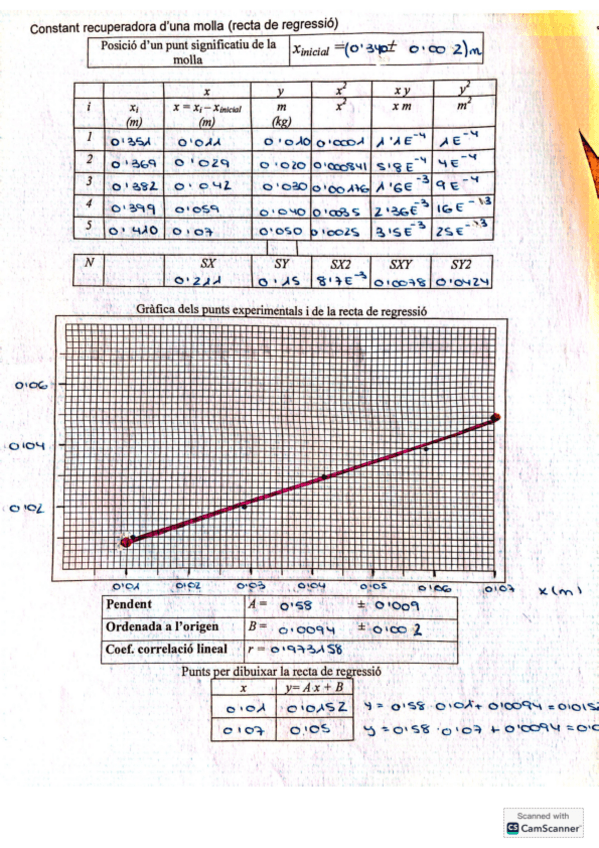 Constant recuperadora d'una molla (recta de regressió)
Posició d'un punt significatiu de la molla x_inicial = (0'340 ± 0'002) m
x y x² x y y²
i x_i x = x_i – x_inicial m x² x m m²
(m) (m) (kg)
1 0'351 0'011 0'010 0'0001 1'1E⁻⁴ 1E⁻⁴
2 0'369 0'029 0'020 0'000841 5'8E⁻⁴ 4E⁻⁴
3 0'382 0'042 0'030 0'00176 1'6E⁻³ 9E⁻⁴
4 0'399 0'059 0'040 0'0035 2'36E⁻³ 16E
5 0'410 0'07 0'050 0'0025 3'5E⁻³ 25E
N SX SY SX2 SXY SY2
0'211 0'15 8'7E⁻³ 0'0078 0'0424
Gràfica dels punts experimentals i de la recta de regressió
0'06
0'04
0'02
0'01 0'02 0'03 0'04 0'05 0'06 0'07 x(m)
Pendent A = 0'58 ± 0'009
Ordenada a l'origen B = 0'0094 ± 0'002
Coef. correlació lineal r = 0'973158
Punts per dibuixar la recta de regressió
x y= A x + B
0'01 0'0152 y = 0'58 · 0'01 + 0'0094 = 0'0152
0'07 0'05 y = 0'58 · 0'07 + 0'0094 =
Scanned with
CS CamScanner